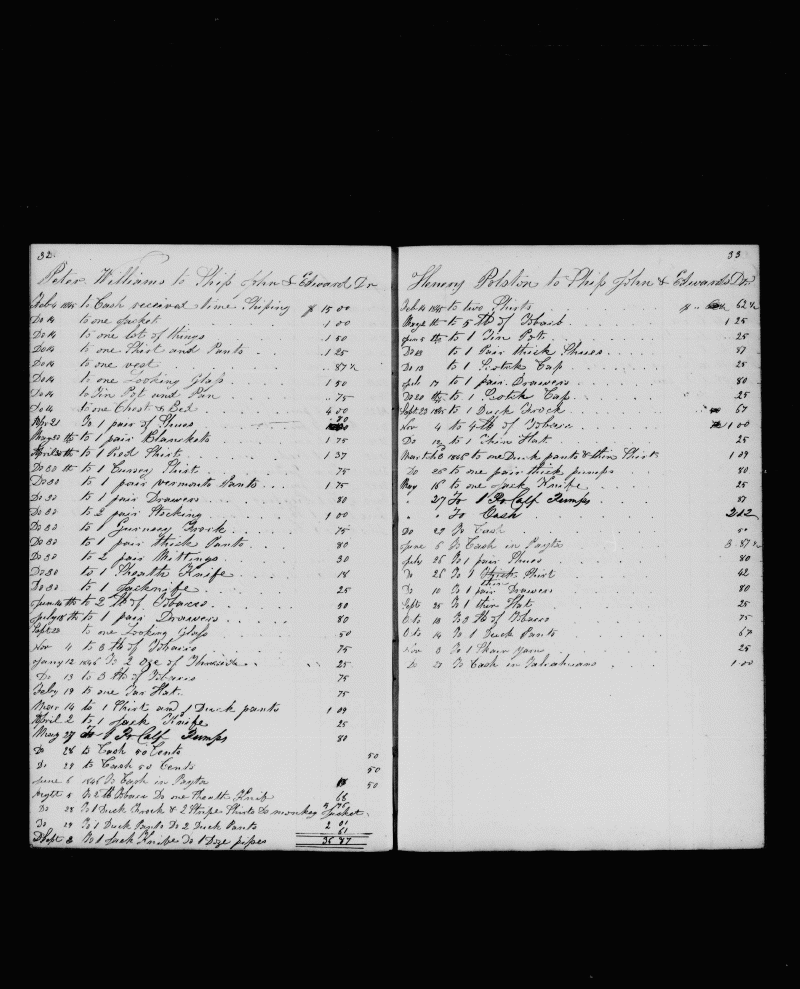 32
Peter Williams to Ship John & Edward Dr
Feby 1845 to Cash received time Shiping $ 15 00
Do 14 to one Jacket 1 00
Do 14 to one lot of things 1 50
Do 14 to one Shirt and Pants 1 25
Do 14 to one vest 87 ½
Do 14 to one Looking Glass 1 50
Do 14 to Tin Pot and Pan 75
Do 14 to one Chest & Bed 4 00
Apr 21 To 1 pair of Shues 80
May 20 th to 1 pair Blankets 1 75
April 30 th to 1 Red Shirt 1 37
Do 30 th to 1 Gursey Shirt 75
Do 30 to 1 pair vermont Pants 1 75
Do 30 to 1 pair Drawers 80
Do 30 to 2 pair Stocking 1 00
Do 30 to 1 Gurnsey Frock 75
Do 30 to 1 pair thick Pants 80
Do 30 to 2 pair Mittings 30
Do 30 to 1 Sheath Knife 18
Do 30 to 1 Jacknife 25
June 14 th to 2 lb of Tobacco 50
July 18 th to 1 pair Drawers 80
Sept 23 to one Looking Glass 50
Nov 4 to 3 lb of Tobacco 75
Jany 12 1846 To 2 Oze of 25
Do 13 to 3 lb of Tobacco 75
Feby 19 to one Tar Hat 75
Mar 14 to 1 Shirt and 1 Duck pants 1 09
April 2 to 1 Jack Knife 25
May 27 To 1 Pr Calf Pumps 80
Do 28 to Cash 50 Cents 50
Do 29 to Cash 50 Cents 50
June 6 1846 To Cash in Payta 50
4 To 2 lb Tobacco Do one Sheath Knife 68
Do 28 To 1 Duck Frock & 2 Stripe Shirts Do monkey Jacket
Do 29 To 1 Duck Pants Do 2 Duck Pants 2 01
Sept 8 To 1 Jack Knife Do 1 Doze pipes 61
35 87
33
Henry Polston to Ship John & Edwards Dr
Feb 14 1845 to two Shirts $ 62 ½
May to 5 lb of Tobacco 1 25
June to 1 Tin Pot 25
Do 13 to 1 Pair thick Shues 87
Do 13 to 1 Scotch Cap 25
July 17 to 1 pair Drawers 80
Do 20 to 1 Scotch Cap 25
Sept 23 1845 to 1 Duck Frock 67
Nov 4 to 4 lb of Tobacco 1 00
Do 12 to 1 Thin Hat 25
Mar 1846 to one Duck pants & thin Shirt 1 09
Do 25 to one pair thick pumps 80
May 15 to one Jack Knife 25
" 27 To 1 Pr Calf Pumps 87
" " To Cash 2 12
Do 29 To Cash 50
June 5 To Cash in Payta 3 87 ½
July 25 To 1 pair Shues 80
Do 25 To 1 thin Shirt 42
Do 10 To 1 pair Drawers 80
Sept 25 To 1 thin Hat 25
Octo 18 To 3 lb of Tobacco 75
Octo 14 To 1 Duck Pants 67
Nov 3 To 1 Skain yarn 25
Do 20 To Cash in Talcahuano 1 00